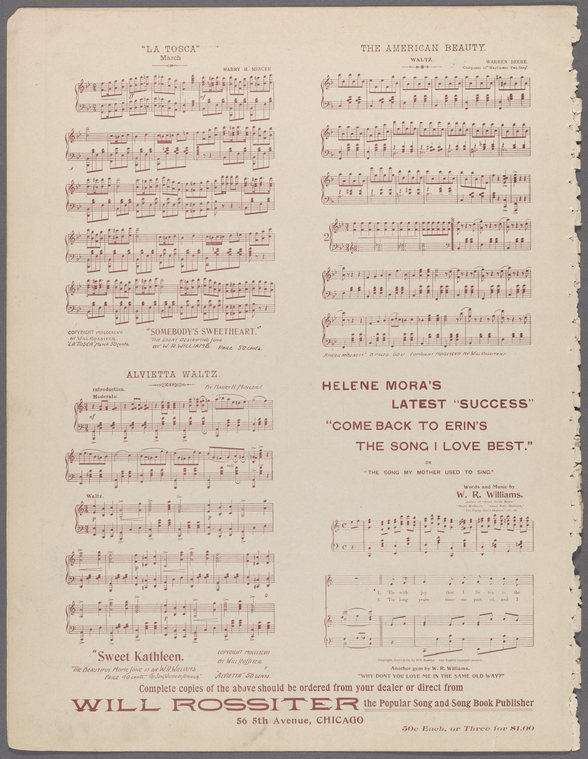 "LA TOSCA"
March
HARRY H. MINCER
COPYRIGHT
BY WILL ROSSITER.
"LA TOSCA" March 50 cents.
"SOMEBODY'S SWEETHEART."
The Great Descriptive Song
BY W. R. WILLIAMS. PRICE 50 cents.
ALVIETTA WALTZ.
By HARRY H. MINCER.
Introduction
Moderato.
Waltz.
"Sweet Kathleen.
"The Beautiful March Song is by W. R. WILLIAMS.
PRICE
COPYRIGHT
BY WILL ROSSITER.
"ALVIETTA" 50 cents.
THE AMERICAN BEAUTY.
WALTZ
WARREN BEEBE.
Composer of
2
HELENE MORA'S
LATEST "SUCCESS"
"COME BACK TO ERIN'S
THE SONG I LOVE BEST."
OR
"THE SONG MY MOTHER USED TO SING."
Words and Music by
W. R. Williams.
1. 'Tis with joy that I to the
2. 'Tis long years since we part ed, and I
Another gem by W. R. Williams.
"WHY DON'T YOU LOVE ME IN THE SAME OLD WAY?"
Complete copies of the above should be ordered from your dealer or direct from
WILL ROSSITER the Popular Song and Song Book Publisher
56 5th Avenue, CHICAGO
50c Each, or Three for $1.00